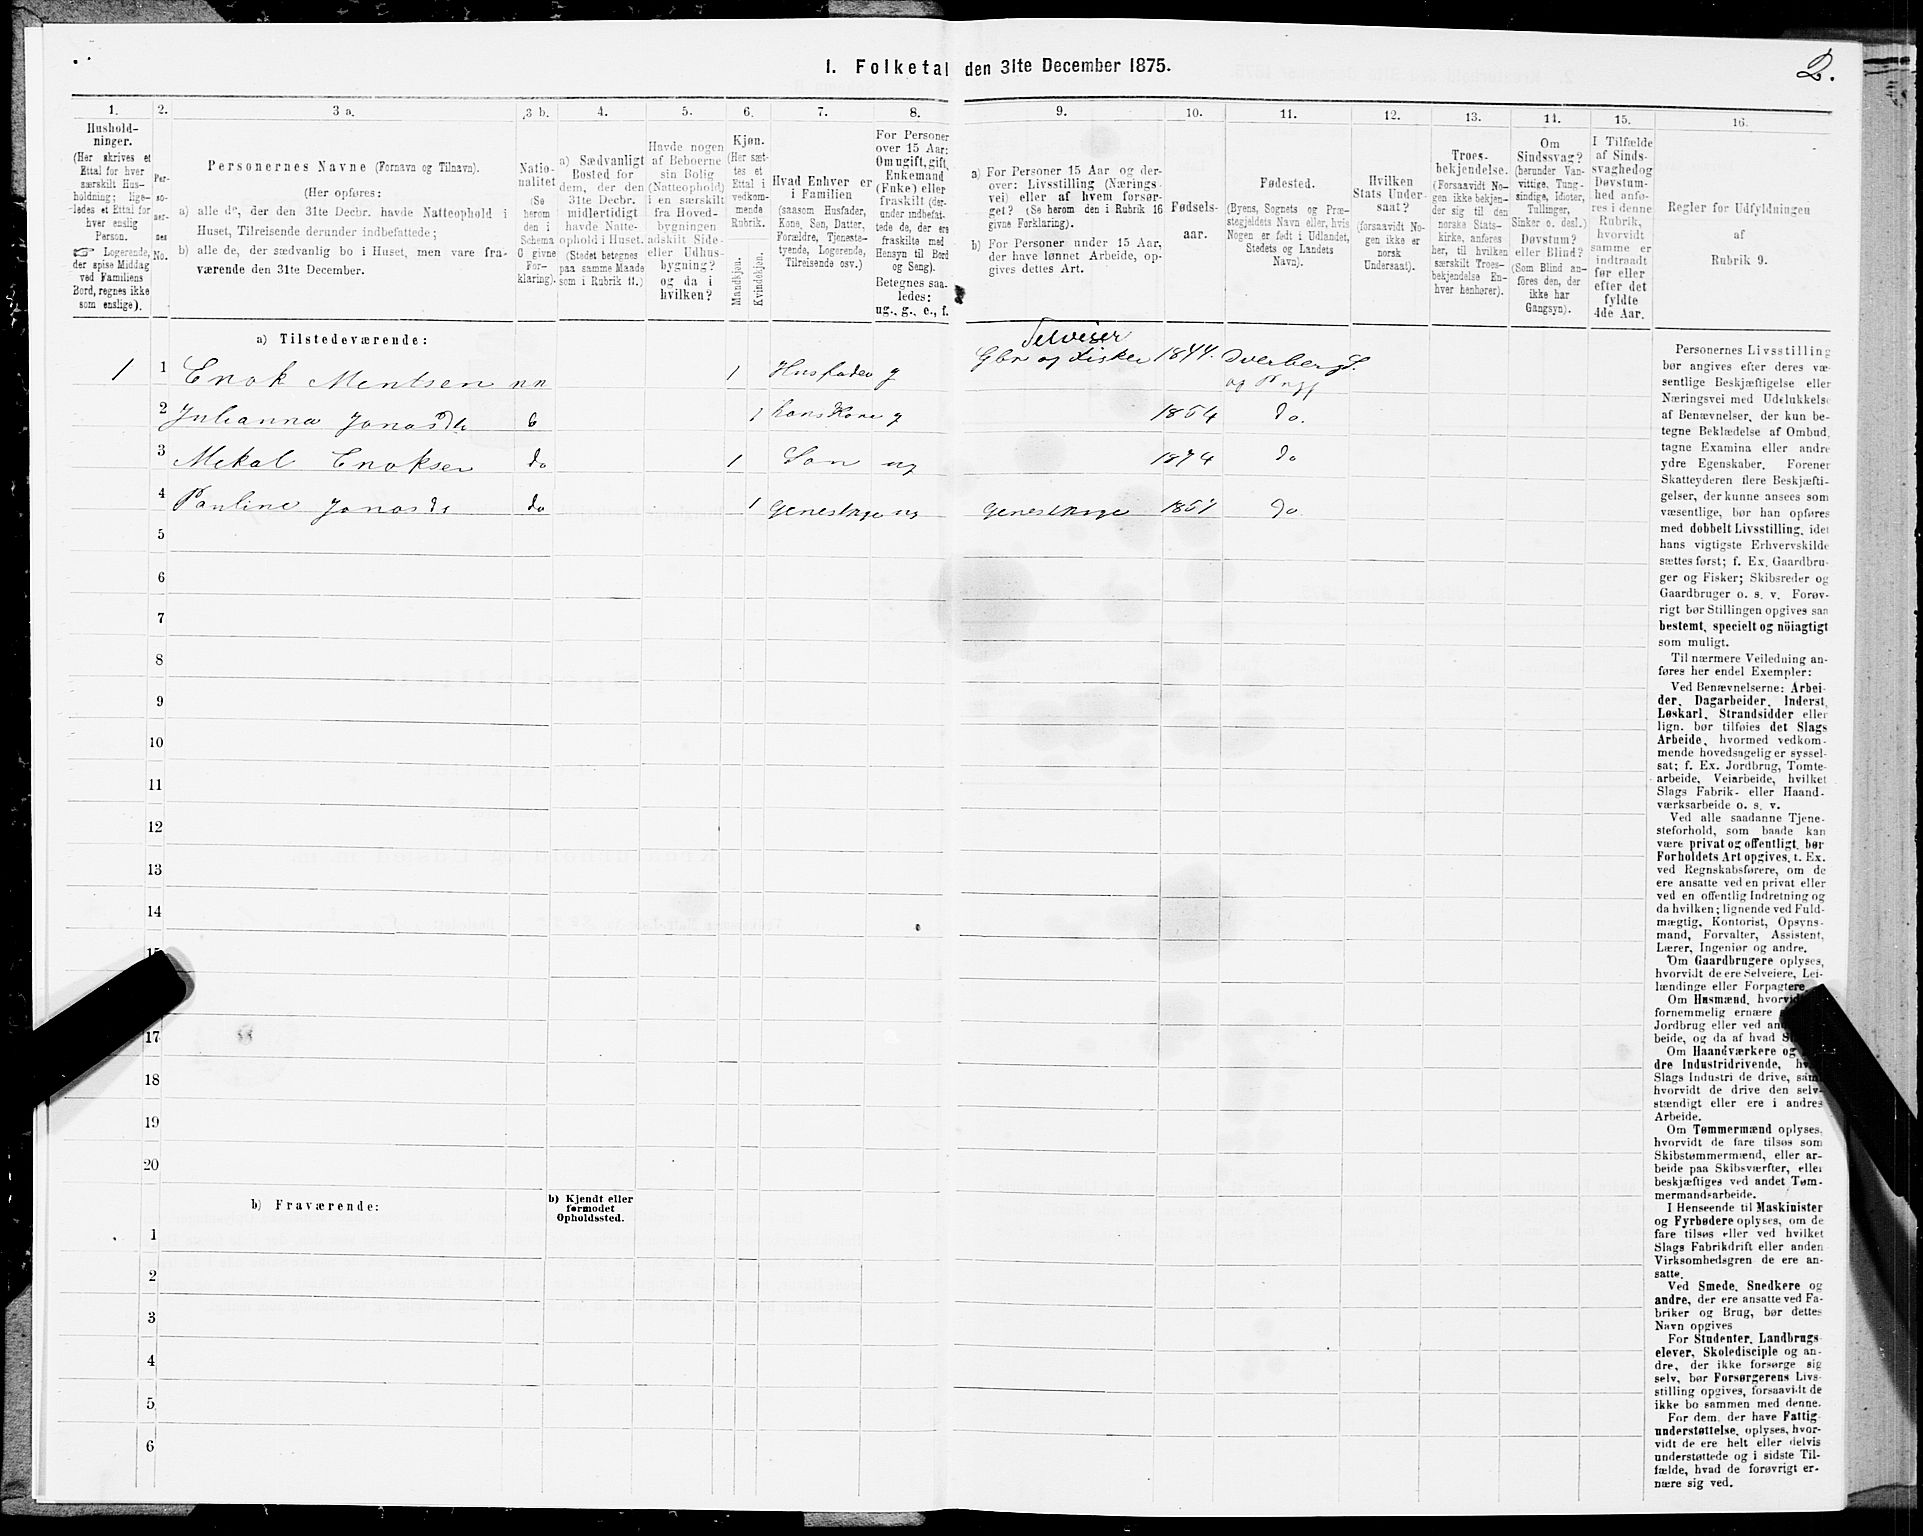 1. Folketal den 31te December 1875.
2.
1.
Hushold-
ninger.
(Her skrives et
Ettal for hver
særskilt Hus-
holdning; lige-
ledes et Ettal for
hver enslig
Person.
☞ Logerende,
der spise Middag
ved Familiens
Bord, regnes ikke
som enslige).
2.
Per-
so-
ner-
nes
No.
3 a.
Personernes Navne (Fornavn og Tilnavn).
(Her opføres:
a) alle de, der den 31te Decbr. havde Natteophold i
Huset, Tilreisende derunder indbefattede;
b) alle de, der sædvanlig bo i Huset, men vare fra-
værende den 31te December.
3 b.
Natio-
nalitet
(Se
herom
den i
Schema
O givne
For-
klaring).
4.
a) Sædvanligt
Bosted for
dem, der den
31te Decbr.
midlertidigt
havde Natte-
ophold i Huset.
(Stedet betegnes
paa samme Maade
som i Rubrik 11.)
5.
Havde nogen
af Beboerne
sin Bolig
(Natteophold)
i en særskilt
fra Hoved-
bygningen
adskilt Side-
eller Udhus-
bygning?
og da i
hvilken?
6.
Kjøn.
(Her sæt-
tes et
Ettal i
vedkom-
mende
Rubrik.
Mandkjøn.
Kvindekjøn.
7.
Hvad Enhver er
i Familien
(saasom Husfader,
Kone, Søn, Datter,
Forældre, Tjeneste-
tyende, Logerende,
Tilreisende osv.)
8.
For Personer
over 15 Aar:
Om ugift, gift,
Enkemand
(Enke) eller
fraskilt (der-
under indbefat-
tede de, der ere
fraskilte med
Hensyn til Bord
og Seng).
Betegnes saa-
ledes:
ug., g., e., f.
9.
a) For Personer 15 Aar og der-
over: Livsstilling (Nærings-
vei) eller af hvem forsør-
get? (Se herom den i Rubrik 16
givne Forklaring).
b) For Personer under 15 Aar,
der have lønnet Arbeide, op-
gives dettes Art.
10.
Fødsels-
aar.
11.
Fødested.
(Byens, Sognets og Præ-
stegjeldets Navn eller, hvis
Nogen er født i Udlandet,
Stedets og Landets
Navn).
12.
Hvilken
Stats Under-
saat?
(forsaavidt No-
gen ikke er
norsk
Undersaat).
13.
Troes-
bekjendelse.
(Forsaavidt No-
gen ikke bekjen-
der sig til den
norske Stats-
kirke, anføres
her, til hvilken
særskilt Troes-
bekjendelse En-
hver henhører).
14.
Om
Sindssvag?
(herunder Van-
vittige, Tung-
sindige, Idioter,
Tullinger,
Sinker o. desl.)
Døvstum?
eller Blind?
(Som Blind an-
føres den, der
ikke har
Gangsyn).
15.
I Tilfælde
af Sinds-
svaghed og
Døvstum-
hed anfø-
res i denne
Rubrik,
hvorvidt
samme er
indtraadt
før eller
efter det
fyldte
4de Aar.
16.
Regler for Udfyldningen
af
Rubrik 9.
a) Tilstedeværende:
Selveier
1 1 Enok Mentsen nn 1 Husfader g Gbr og Fisker 1844. Dverbergs.
2 Julianna Jonasdt 6 1 hans Kone g 1854 do.
3 Mekal Enoksen do 1 Søn ug 1874 do
4 Pauline Jonasdt do 1 ug 1857 do
5
6
7
8
9
10
11
12
13
14
15
17
18
19
20
b) Fraværende:
b) Kjendt eller
formodet
Opholdssted.
1
2
3
4
5
6
Personernes Livsstilling
bør angives efter deres væ-
sentlige Beskjæftigelse eller
Næringsvei med Udelukkelse
af Benævnelser, der kun be-
tegne Beklædelse af Ombud,
tagne Examina eller andre
ydre Egenskaber. Forener
Skatteyderen flere Beskjæfti-
gelser, der kunne ansees som
væsentlige, bør han opføres
med dobbelt Livsstilling, idet
hans vigtigste Erhvervskilde
sættes først; f. Ex. Gaardbru-
ger og Fisker; Skibsreder og
Gaardbruger o. s. v. Forøv-
rigt bør Stillingen opgives saa
bestemt, specielt og nöiagtigt
som muligt.
Til nærmere Veiledning an-
føres her endel Exempler:
Ved Benævnelserne: Arbei-
der, Dagarbeider, Inderst,
Løskarl, Strandsidder eller
lign. bør tilføies det Slags
Arbeide, hvormed vedkom-
mende hovedsagelig er syssel-
sat; f. Ex. Jordbrug, Tomte-
arbeide, Veiarbeide, hvilket
Slags Fabrik- eller Haand-
værksarbeide o. s. v.
Ved alle saadanne Tjene-
steforhold, som baade kan
være privat og offentligt, bør
Forholdets Art opgives, t. Ex.
ved Regnskabsførere, om de
ere ansatte ved en privat eller
ved en offentlig Indretning og
da hvilken; lignende ved Fuld-
mægtig, Kontorist, Opsyns-
mand, Forvalter, Assistent,
Lærer, Ingeniør og andre.
Om Gaardbrugere oplyses,
hvorvidt de ere Selveiere, Lei-
lændinge eller Forpagtere
Om Husmænd, hvorvidt
fornemmelig ernære
Jordbrug eller ved
beide, og da af hvad
Om Haandværkere og
dre Industridrivende,
Slags Industri de drive, samt
hvorvidt de drive den selv-
stændigt eller ere i andres
Arbeide.
Om Tømmermænd oplyses,
hvorvidt de fare tilsøs som
Skibstømmermænd, eller ar-
beide paa Skibsværfter, eller
beskjæftiges ved andet Tøm-
mermandsarbeide.
I Henseende til Maskinister
og Fyrbødere oplyses, om de
fare tilsøs eller ved hvilket
Slags Fabrikdrift eller anden
Virksomhedsgren de ere an-
satte.
Ved Smede, Snedkere og
andre, der ere ansatte ved Fa-
briker og Brug, bør dettes
Navn opgives
For Studenter, Landbrugs-
elever, Skoledisciple og an-
dre, der ikke forsørge sig
selv, bør Forsørgerens Livs-
stilling opgives, forsaavidt de
ikke bo sammen med denne.
For dem, der have Fattig-
understøttelse, oplyses, hvor-
vidt de ere helt eller delvis
understøttede og i sidste Til-
fælde, hvad de forøvrigt er-
nære sig ved.